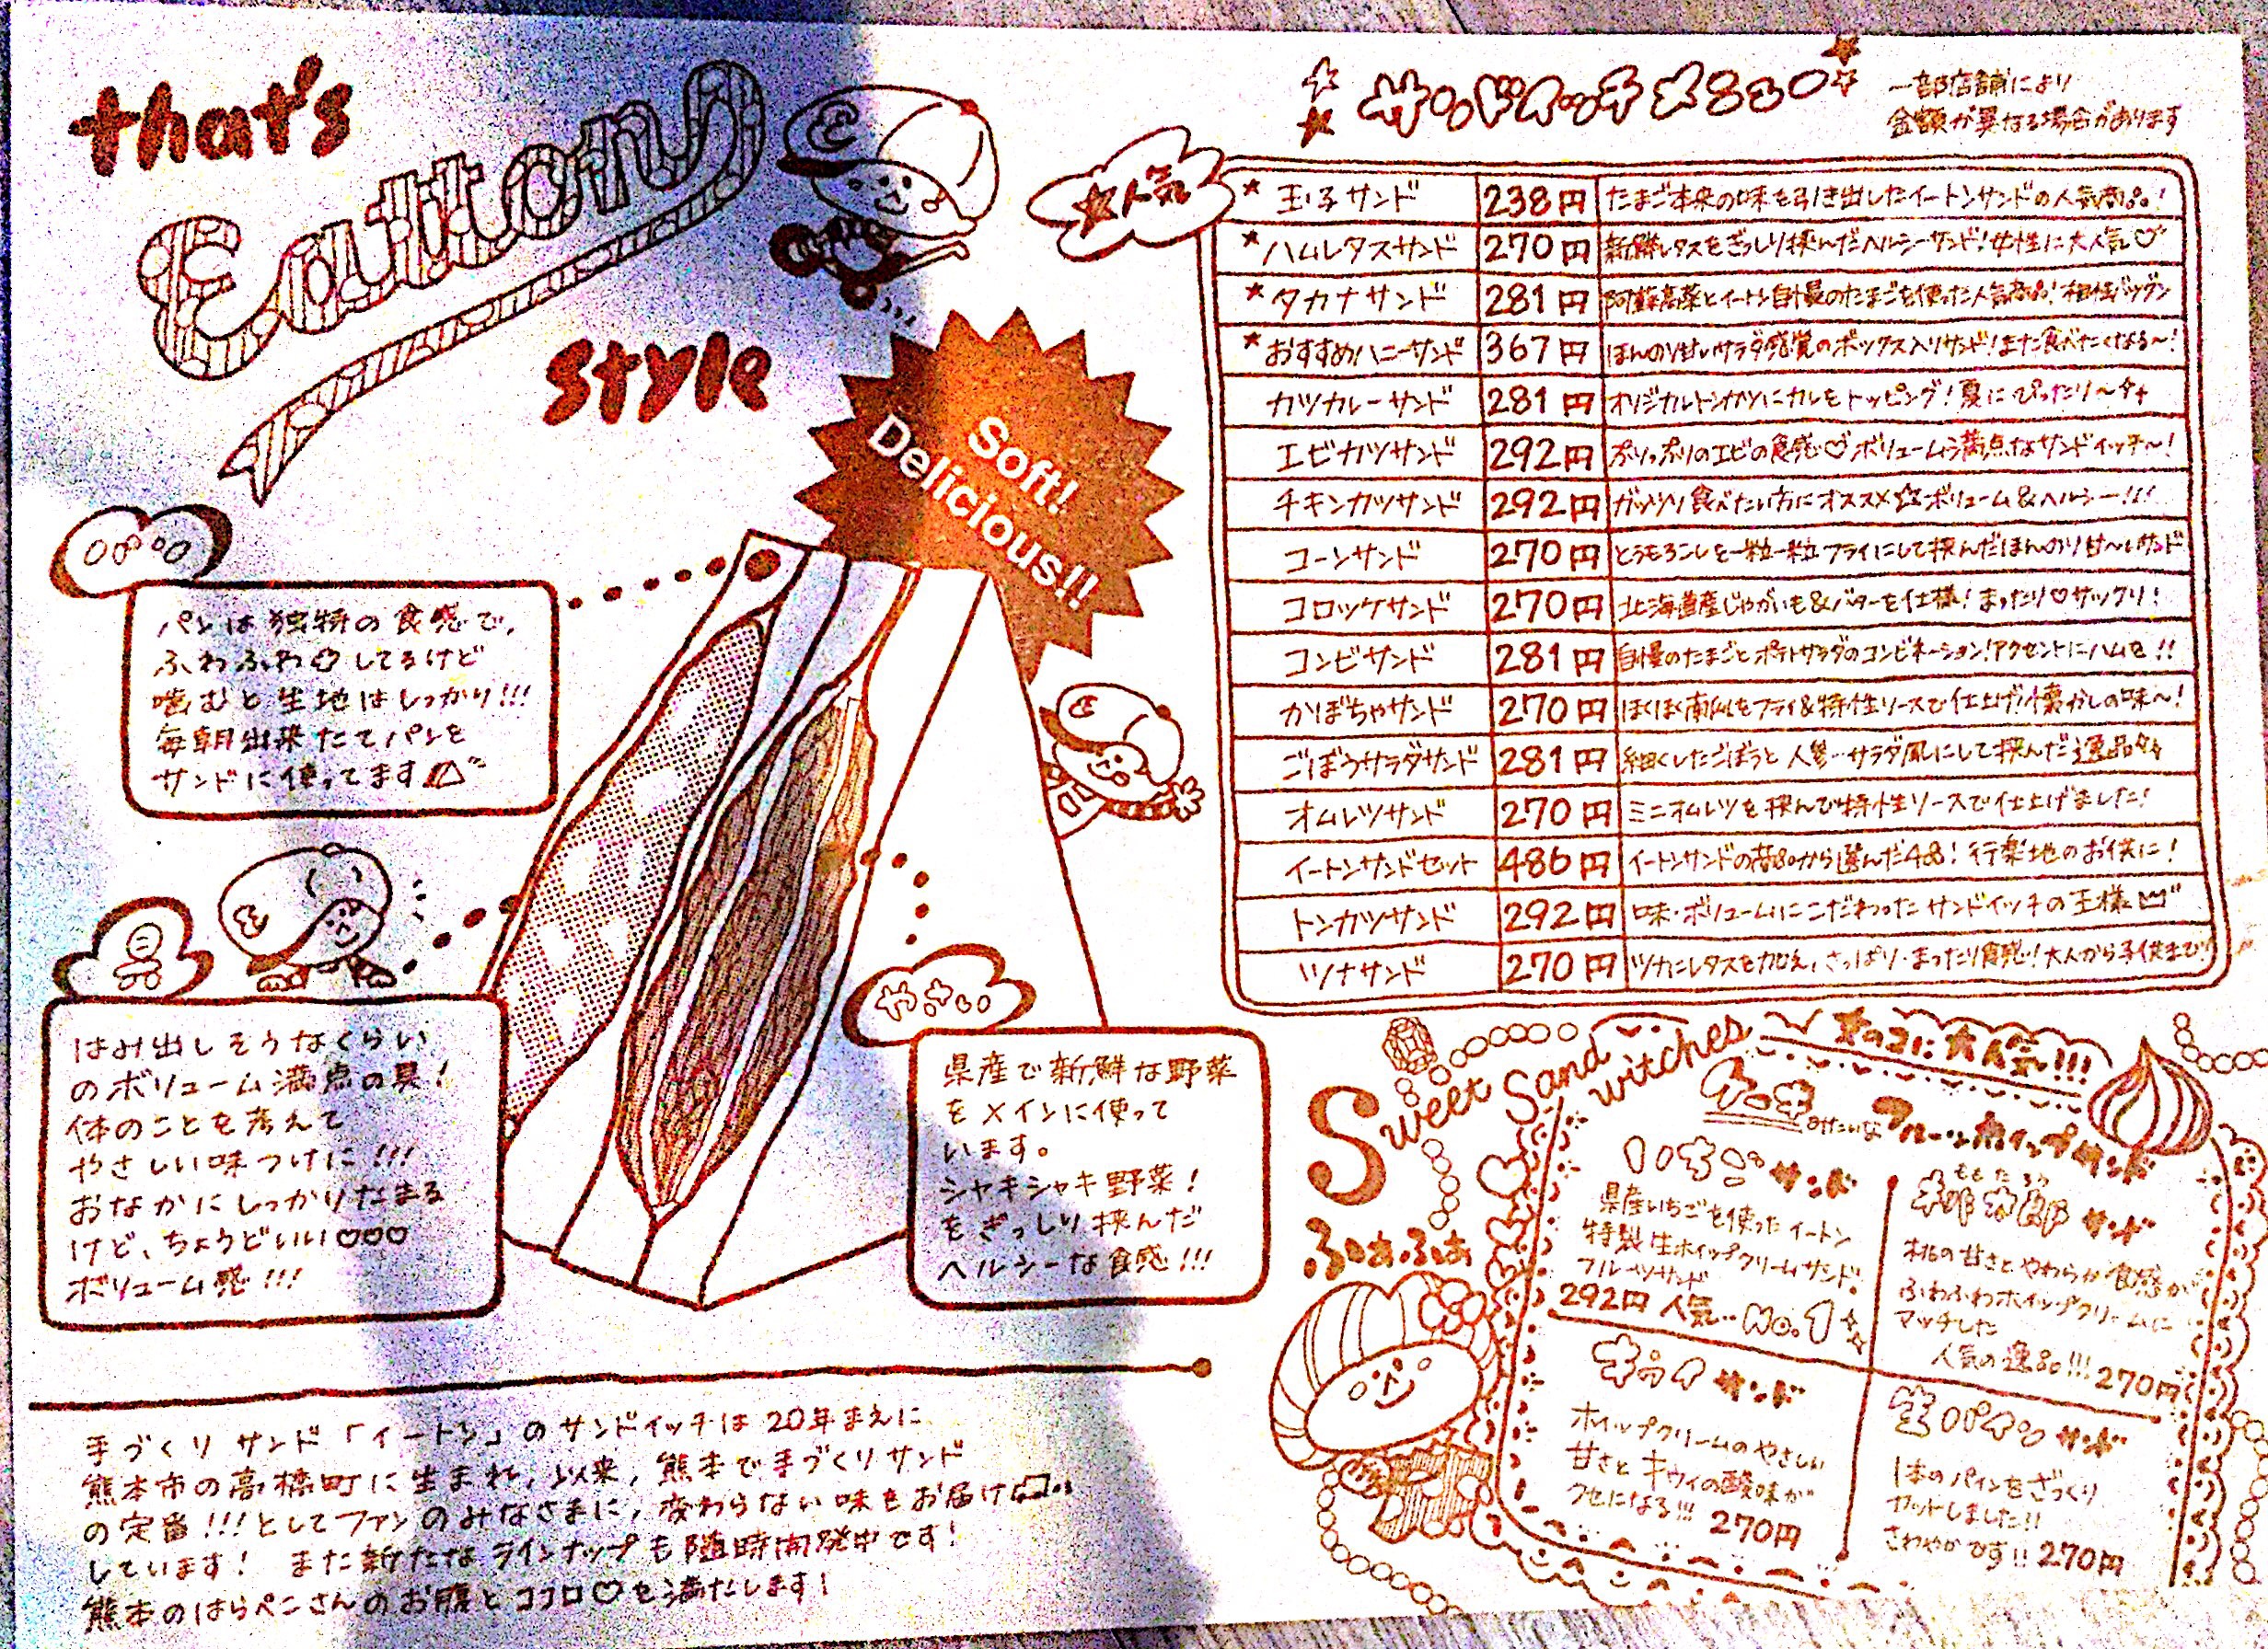 that's
Eatton
style
Soft!
Delicious!!
パンは独特の食感で、
ふわふわしてるけど
噛むと生地はしっかり!!!
毎朝出来たてパンを
サンドに使ってます
具
はみ出しそうなくらい
のボリューム満点の具!
体のことを考えて
やさしい味つけに!!!
おなかにしっかりたまる
けど、ちょうどいい♡♡♡
ボリューム感!!!
やさい
県産で新鮮な野菜
をメインに使って
います。
シャキシャキ野菜!
をぎっしり挟んだ
ヘルシーな食感!!!
手づくりサンド「イートン」のサンドイッチは20年まえに
熊本市の高橋町に生まれ、以来、熊本で手づくりサンド
の定番!!!としてファンのみなさまに、変わらない味をお届け
しています! また新たなラインナップも随時開発中です!
熊本のはらペコさんのお腹とココロ♡を満たします!
★サンドイッチメニュー★
一部店舗により
金額が異なる場合があります
★人気
★玉子サンド 238円 たまご本来の味を引き出したイートンサンドの人気商品!
★ハムレタスサンド 270円 新鮮レタスをぎっしり挟んだヘルシーサンド!女性に大人気♡
★タカナサンド 281円 阿蘇高菜とイートン自慢のたまごを使った人気商品!相性バツグン
★おすすめハニーサンド 367円 ほんのり甘いサラダ感覚のボックス入りサンド!また食べたくなる〜!
カツカレーサンド 281円 オリジナルトンカツにカレーをトッピング!夏にぴったり〜
エビカツサンド 292円 ぷりっぷりのエビの食感♡ボリューム満点なサンドイッチ〜!
チキンカツサンド 292円 ガッツリ食べたい方にオススメ☆ボリューム&ヘルシー!!!
コーンサンド 270円 とうもろこしを一粒一粒フライにして挟んだほんのり甘〜いサンド
コロッケサンド 270円 北海道産じゃがいも&バターを仕様!まったり♡サックリ!
コンビサンド 281円 自慢のたまごとポテトサラダのコンビネーション!アクセントにハムを!!
かぼちゃサンド 270円 ほくほく南瓜をフライ&特性ソースで仕上げ!懐かしの味〜!
ごぼうサラダサンド 281円 細くしたごぼうと人参…サラダ風にして挟んだ逸品
オムレツサンド 270円 ミニオムレツを挟んで特性ソースで仕上げました!
イートンサンドセット 486円 イートンサンドの商品から選んだ4品!行楽地のお供に!
トンカツサンド 292円 味・ボリュームにこだわったサンドイッチの王様
ツナサンド 270円 ツナにレタスを加え、さっぱり・まったり食感!大人から子供まで!
Sweet Sand witches
ふわふわ
オンナのコに大人気!!!
ケーキみたいなフルーツホイップサンド
いちごサンド
県産いちごを使ったイートン
特製生ホイップクリームサンド!
フルーツサンド
292円 人気…No.1
ももたろう
桃太郎サンド
桃の甘さとやわらか食感が
ふわふわホイップクリームに
マッチした
人気の逸品!!! 270円
キウイサンド
ホイップクリームのやさしい
甘さとキウィの酸味が
クセになる!!! 270円
生パインサンド
1本のパインをざっくり
カットしました!!
さわやかです!! 270円